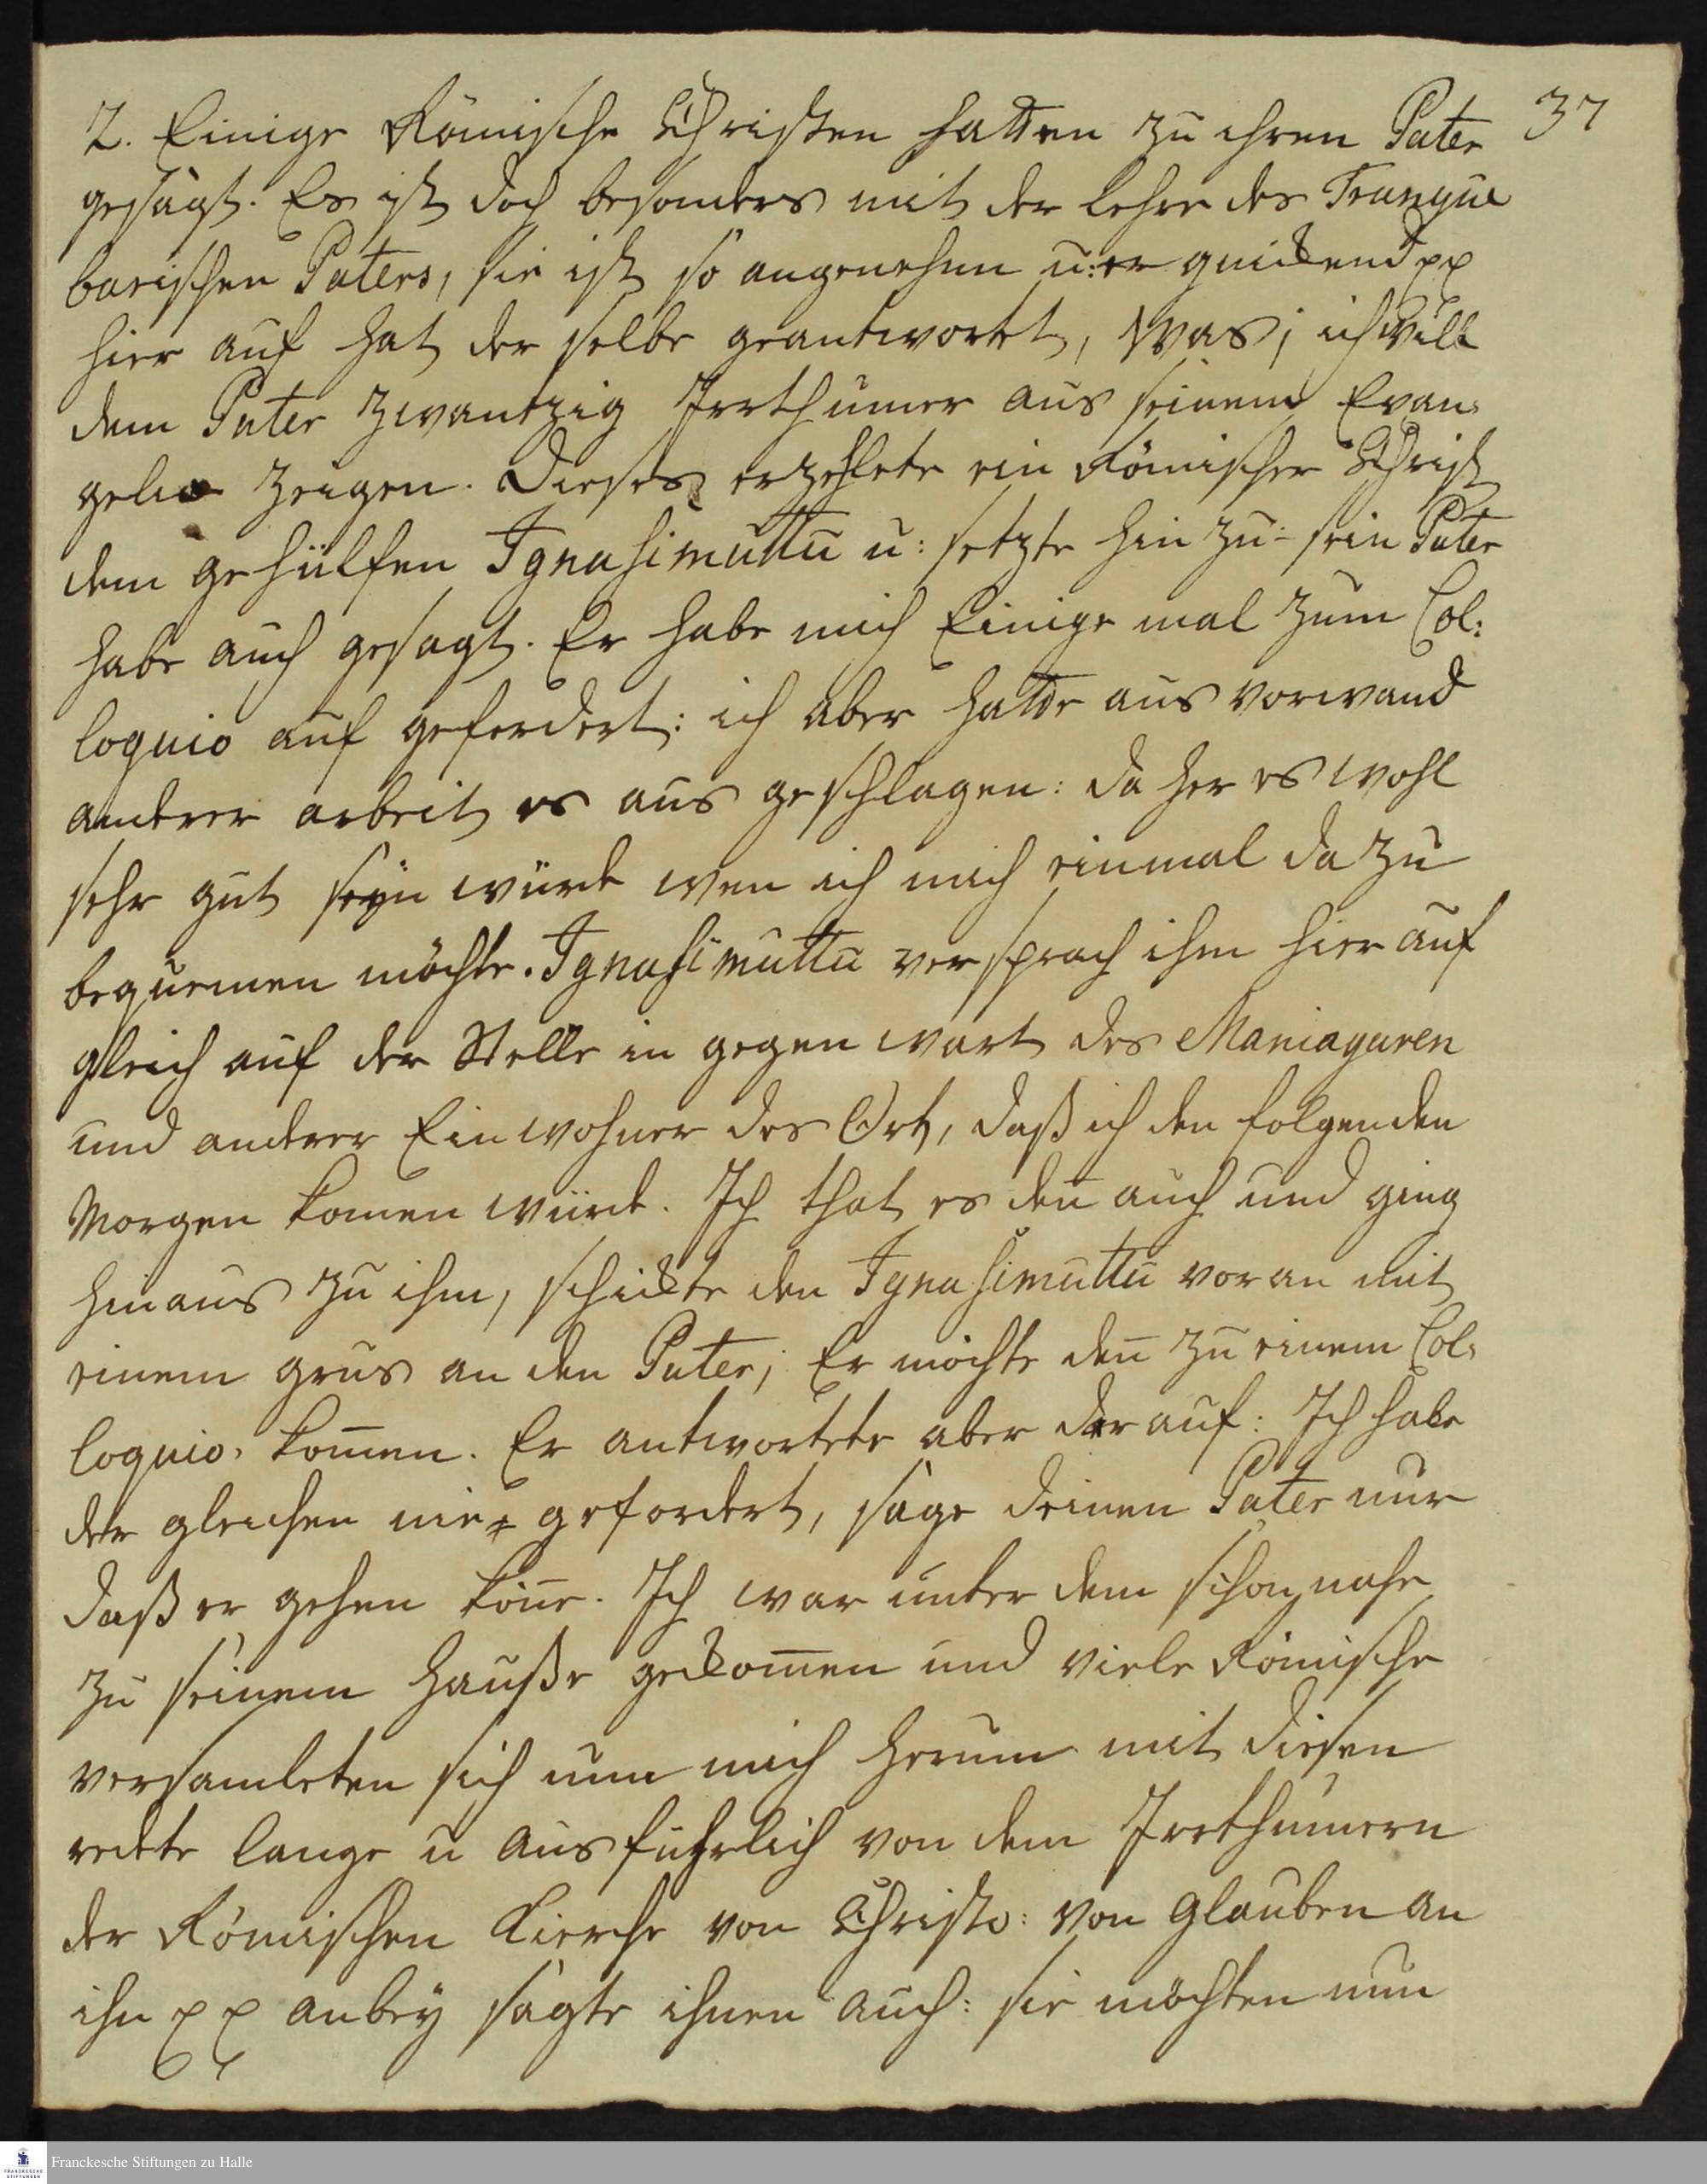 37
2. Einige Römische Christen hatten zu ihren Pater
gesagt. Es ist doch besonders mit der Lehre des Tranque
barischen Paters, sie ist so angenehm u: er quickend pp
hier auf hat der selbe geantwortet, Was; ich will
dem Pater zwantzig Irrthümer aus seinem Evan:
gelio zeigen. Dieses erzehlete ein Römischer Christ
dem gehülfen Ignasimuttu u: setzte hin zu: sein Pater
habe auch gesagt. Er habe mich Einige mal zum Col:
loquio auf gefordert: ich aber hatte aus vorwand
anderer arbeit es aus geschlagen: da her es wohl
sehr gut seÿn würde wen ich mich einmal da zu
bequemen möchte. Ignasimuttu versprach ihm hier auf
gleich auf der Stelle in gegen wart des Maniagaren
und anderer Einwohner des Ort, daß ich den folgenden
Morgen komen würde. Ich that es den̄ auch und ging
hinaus zu ihm, schickte den Ignasimuttu voran mit
einem grus an den Pater; Er möchte den̄ zu einem Col:
loquio, kom̄en. Er antwortete aber der auf: Ich habe
der gleichen nie gefordert, sage deinen Pater nur
daß er gehen kön̄e. Ich war unter dem schon nahe
zu seinem Hauße gekom̄en und viele Römische
versamleten sich um mich herum mit diesen
redete lange u ausführlich von dem Irrthümern
der Römischen Kierche von Christo: von Glauben an
ihn p p anbeÿ sagte ihnen auch: sie möchten nun
Franckesche Stiftungen zu Halle
FRANCKESCHE
STIFTUNGEN